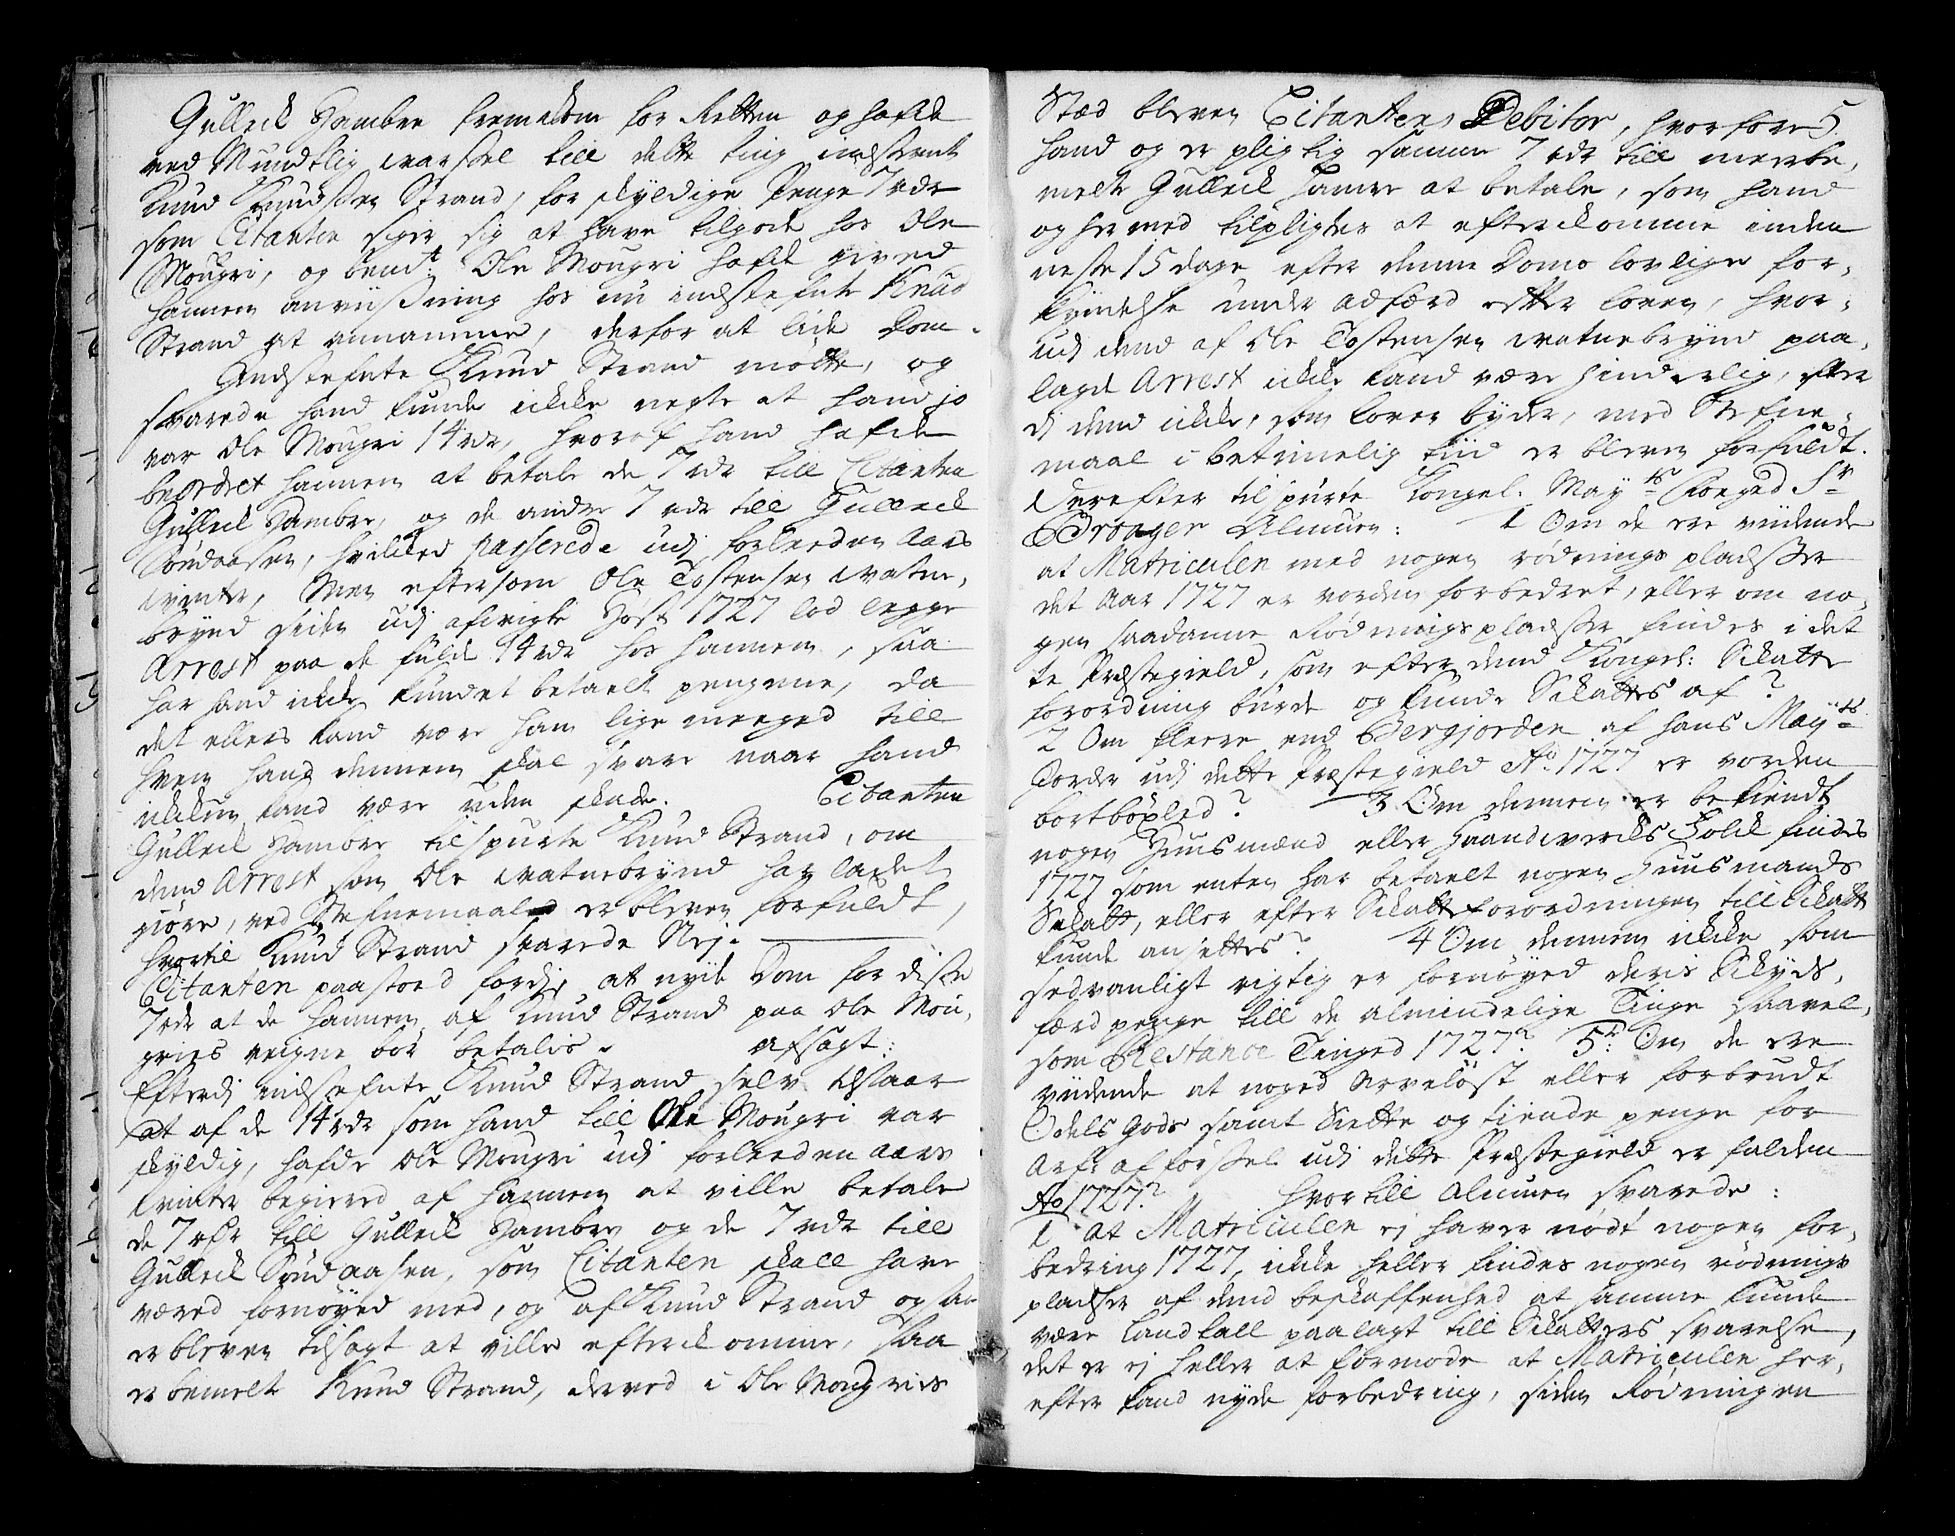 Gulleck Hambre fremkom for Retten og hafde
ved Mundtlig warssel till dette ting indstevnt
Knud Knudssen Strand, for skyldige Penge 7 rdr
som Citanten siger sig at have tilgode hos Ole
Mougri, og bemt. Ole Mougri hafde gived
hannem anviissning hos nu indstefnte Knud
Strand at annamme, derfor at lide Dom.
Indstefnte Knud Strand mötte, og
svarede hand kunde ikke negte at hand jo
var Ole Mougri 14 rdr, hvoraf hand hafde
beordret hannem at betale de 7 rdr till Citanten
Gulleck Hambre, og de andre 7 rdr till Gulleck
Söndaasen, hvilked passerede udj forleeden Aars
winter, Men eftersom Ole Tostensen watne,
brynd siden udj afvigte Höst 1727 lod legge
Arrest paa de fulde 14 rdr hos hannem, saa
har hand ikke kundet betaelt pengene, da
det ellers kand være ham lige meeged till
hvem hand dennem skal svare naar hand
ikkun kand være uden skade. Citanten
Gulleck Hambre tilspurte Knud Strand, om
dend Arrest som Ole watnebrynd har ladet
giöre, ved Stefnemaal er bleven forfuldt,
hvortil Knud Strand svarede Nej.
Citanten paastoed fordj, at nyde Dom for disse
7 rdr at de hannem af Knud Strand paa Ole Mou,
gries veigne bör betales. Afsagt:
Efterdj indstefnte Knud Strand selv tilstaar
at af de 14 rdr som hand till Ole Mougri var
skyldig, hafde Ole Mougri udj forleeden aars
winter begiered af hannem at ville betale
de 7 rdr till Gulleck Hambre og de 7 rdr till
Gulleck Söndaasen, som Citanten skall have
væred fornöyed med, og af Knud Strand og saa
er bleven tilsagt at ville efterkomme, saa
er bemelte Knud Strand, derved i Ole Mougries
Stæd bleven Citantens Debitor, hvorfore 5.
hand og er pligtig samme 7 rdr till meerbe,
melte Gulleck Hambre at betale, som hand
og hermed tilpligtes at efterkomme inden
neste 15 dage efter denne Doms lovlige for,
kyndelse under adfærd efter loven, hvor,
udj dend af Ole Tostensen watnebrynd paa,
lagde Arrest ikke kand være hinderlig, efter
dj dend ikke, som loven byder, med Stefne,
maal i betimelig tiid er bleven forfuldt.
Derefter tilspurte Kongel: Mayts Foeged Sr
Brouger Almuen: 1 Om de ere viidende
at Matriculen med nogen rödnings pladsser
det Aar 1727 er vorden forbedret, eller om no,
gen saadanne Rödningspladsser findes i det
te Præstegield, som efter dend Kongel: Skatte
forordning burde og kunde Skattes af?
2 Om fleere end Bergjorden af hans Mayts
Jorder udj dette Præstegield Ao 1727 er vorden
bortböxled? 3 Om dennem er bekiendt
nogen Huusmænd eller Haandverks Folck findes
1727 som enten har betaelt nogen Huusmands
Skatt, eller efter Skatteforordningen till Skatt
kunde ansettes? 4 Om dennem ikke som
sedvanligt rigtig er fornöyed deris Skyds,
færd penge till de almindelige Tinge saavel,
som Restance Tinged 1727? 5t: Om de ere
viidende at noged arvelöst eller forbrudt
Odels Gods samt Siette og tiende penge for
Arfs afförssel udj dette Præstegield er falden
Ao 1727? hvortill Almuen svarede:
1 at Matriculen ej haver nödt nogen for,
bedring 1727, ikke heller findes nogen rödnings
pladser af dend beskaffenhed at samme kunde
være landfall paalagt till Skatters svarelse,
det er ej heller at formode at Matriculen her,
efter kand nyde forbedring, siden Rödningen